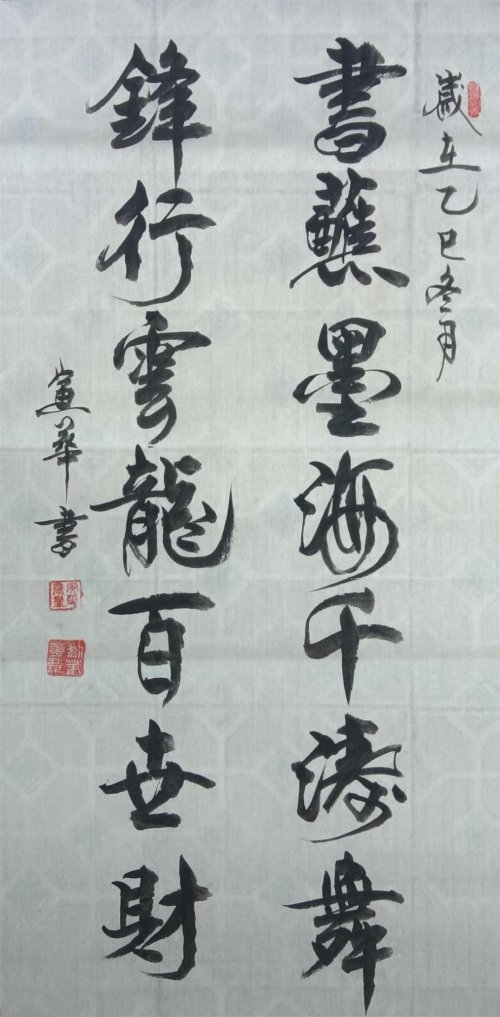 歲在乙巳冬月
書蘸墨海千濤舞
鋒行雲龍百世財
寅華書